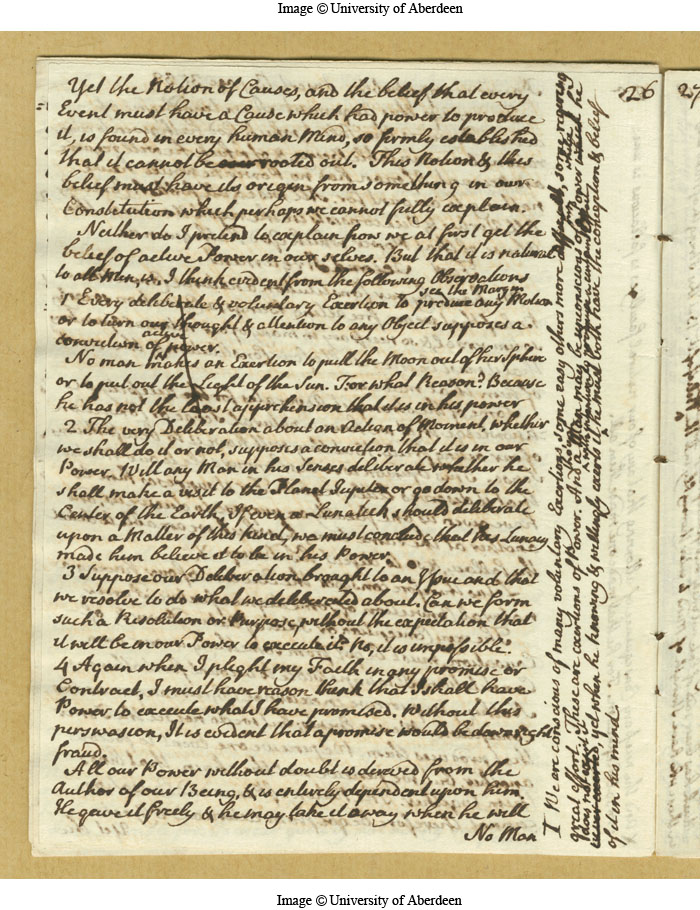 Image © University of Aberdeen
26
27
Yet the Notion of Causes, and the belief that every
Event must have a Cause which had power to produce
it, is found in every human Mind, so firmly established
that it cannot be rooted out. This Notion & this
belief must have its origin from something in our
Constitution which perhaps we cannot fully explain.
Neither do I pretend to explain how we at first get the
belief of active Power in our selves. But that it is natural
to all Men, is, I think evident from the following Observations
see the Margin
1 Every deliberate & voluntary Exertion to produce any Motion
or to turn our thought & attention to any Object supposes a
active
conviction of power.
No man makes an Exertion to pull the Moon out of her Sphere
or to put out the Light of the Sun. For what Reason? Because
he has not the least apprehension that it is in his power
2 The very Deliberation about an Action of Moment, whether
we shall do it or not, supposes a conviction that it is in our
Power. Will any Man in his Senses deliberate whether he
shall make a visit to the Planet Jupiter or go down to the
Center of the Earth. If even a Lunatick should deliberate
upon a Matter of this kind, we must conclude that his Lunacy
made him believe it to be in his Power.
3 Suppose our Deliberation brought to an Issue and that
we resolve to do what we deliberated about. Can we form
such a Resolution or Purpose, without the expectation that
it will be in our Power to execute it? No, it is impossible.
4 Again when I plight my Faith in any promise or
Contract, I must have reason think that I shall have
Power to execute what I have promised. Without this
perswasion, It is evident that a promise would be downright
fraud.
All our Power without doubt is derived from the
Author of our Being, & is entirely dependent upon him
He gave it freely & he may take it away when he will
No Man
1 We are conscious of many voluntary Exertions, some easy others more difficult, some requiring
great effort. These are exertions of Power. And a Man may be unconscious of Power which he
does not exert
never exerted, yet when he knowing & willingly exerts it he must both have the conception & belief
of it in his mind.
Image © University of Aberdeen